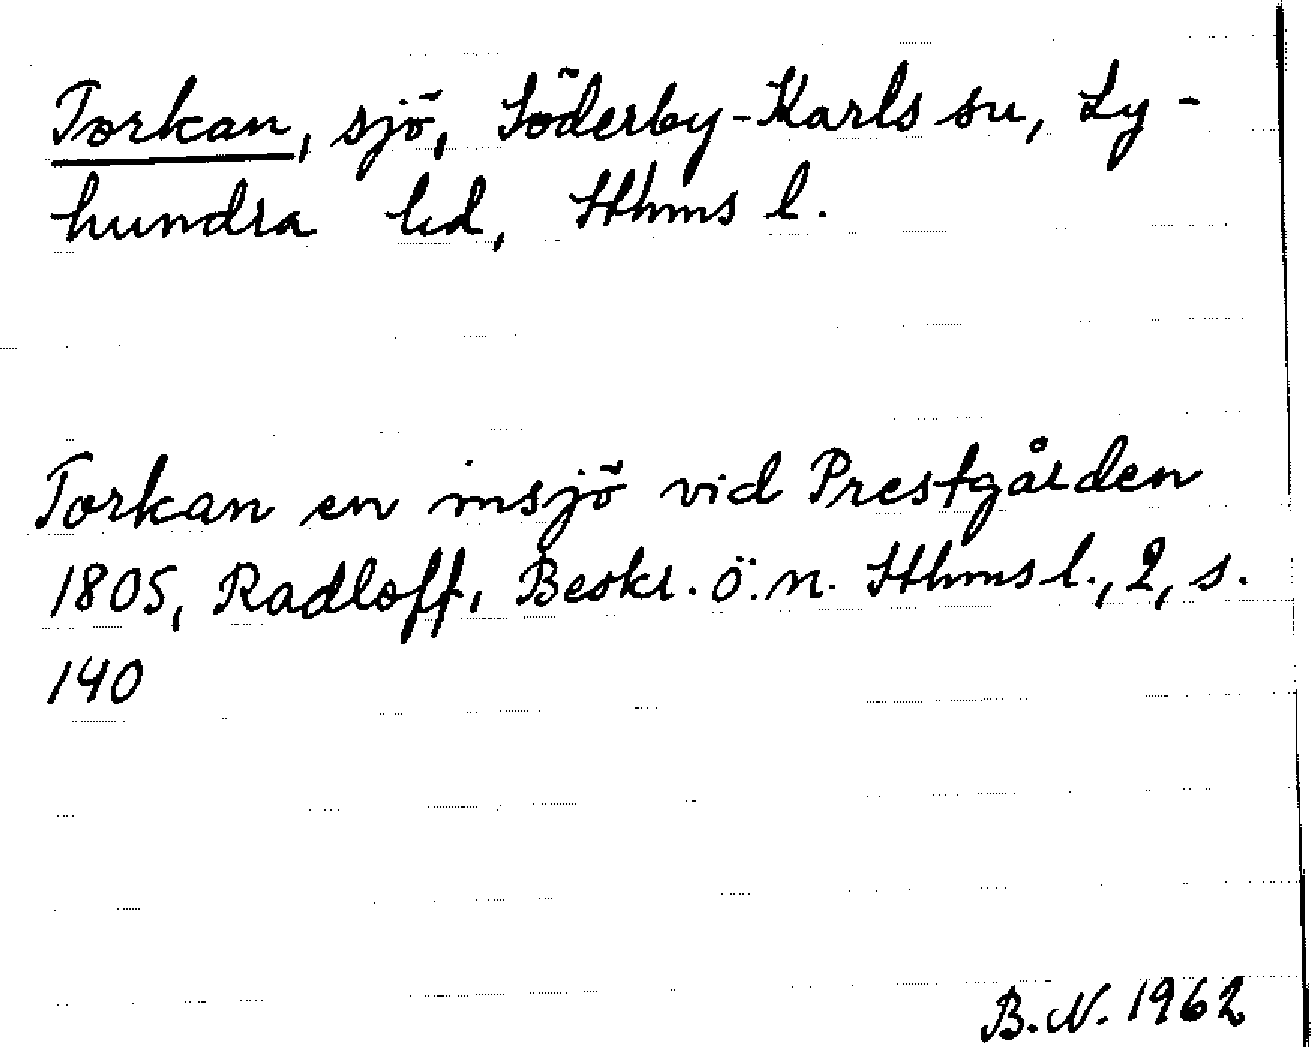 Torkan, sjö, Söderby-Karls sn, Ly-
hundra hd, Sthms l.
Torkan en insjö vid Prestgården
1805, Radloff, Beskr. ö. n. Sthms l., 2, s.
140
B. N. 1962